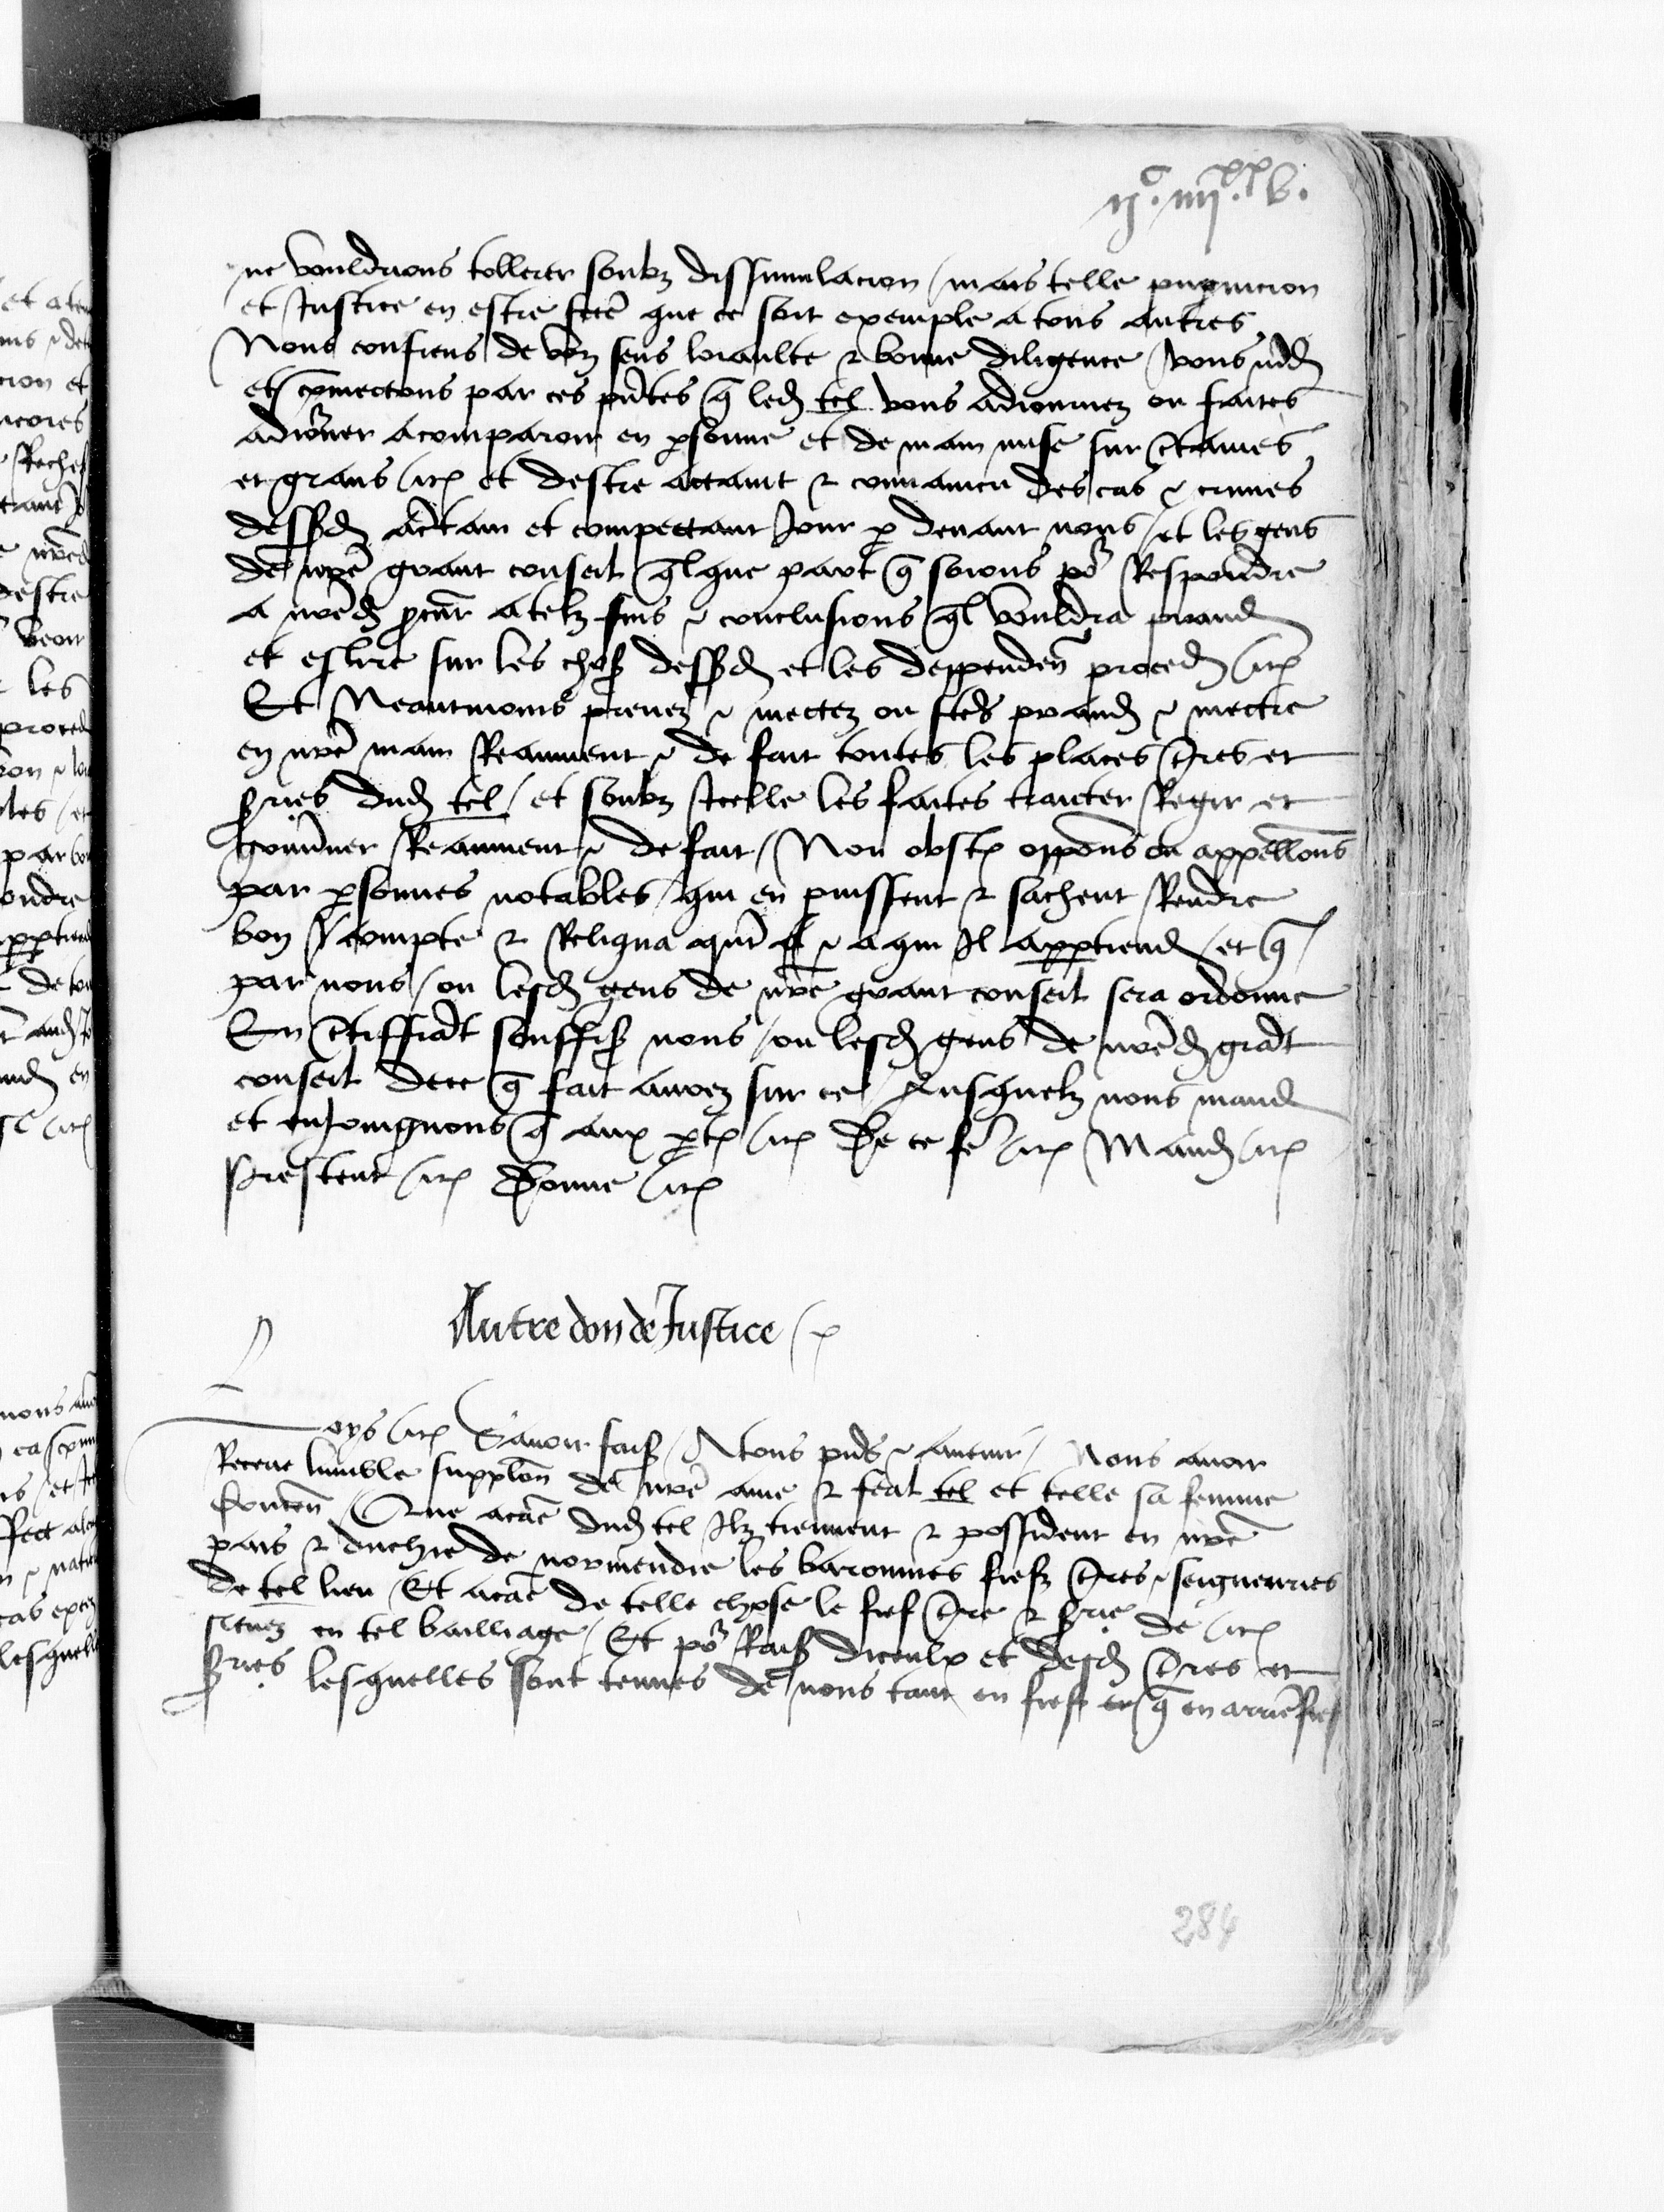 ijc. iiijxx. v.
ne vouldrions tollerer soubz dissimulacion / mais telle pugnicion
et Justice en estre fcē que ce soit exemple a tous autres
Nous confiens de voz sens loiaulte & bonne diligence / vous mdd
et cōmectons par ces pñtes q̄ led tel vous adiournez ou faites
adioꝰner acomparoir en ꝑsonne et de main mise sur c̄taines
et grans etc et destre actaint & convaincu des cas & crimes
dessusd ac̄tain et compectant Jour ꝑ devant nous / et les gens
de nr̄e grant conseil q̄lque part q̄ soions poꝰ Respondre
a nr̄ed ꝓcur̄ a telz fins & conclusions q̄l vouldra prandr
et eslire sur les choses dessusd et les deppenden̄ proced etc
Et Neantmoins prenez & mectez ou ftēs prandr & mectre
en nr̄e main Reaument & de fait toutes les places t̄res et
sr̄ies dud tel / et soubz Icelle les faites traicter Regir et
gouv̄ner Reaument & de fait / Non obst oppōns ou appellōns
par ꝑsonnes notables / qui en puissent & sachent Rendre
bon compte & Reliqua qn̄t & a qui Il appartiendr / et q̄
par nous / ou lesd gens de nr̄e grant conseil sera ordonne
En c̄tiffiāt souffis nous / ou lesd gens de nr̄ed grāt
conseil de ce q̄ fait aurez sur ce / Ausquelz nous mand
et enJoingnons q̄ aux ꝑt etc De ce fe etc Mand etc
prestent etc Donne etc
Autre don de Justice / etc
Loys etc Savoir fais / Atous pn̄s & avenir / Nous avoir
Receue lumble supplōn de nr̄e ame & feal tel et telle sa femme
Conten̄ / Que acāe dud tel Ilz tiennent & possident en nr̄e
pais & duchie de normendie les baronnies fiefz t̄res & seigneuries
de tel lieu / Et acāe de telle chose le fief t̄re & sr̄ie de etc
situez en tel bailliage / Et poꝰ Rais diceulx et desd t̄res et
sr̄ies lesquelles sont tenues de nous tant en fiefz q̄ en arrie͂fief
284